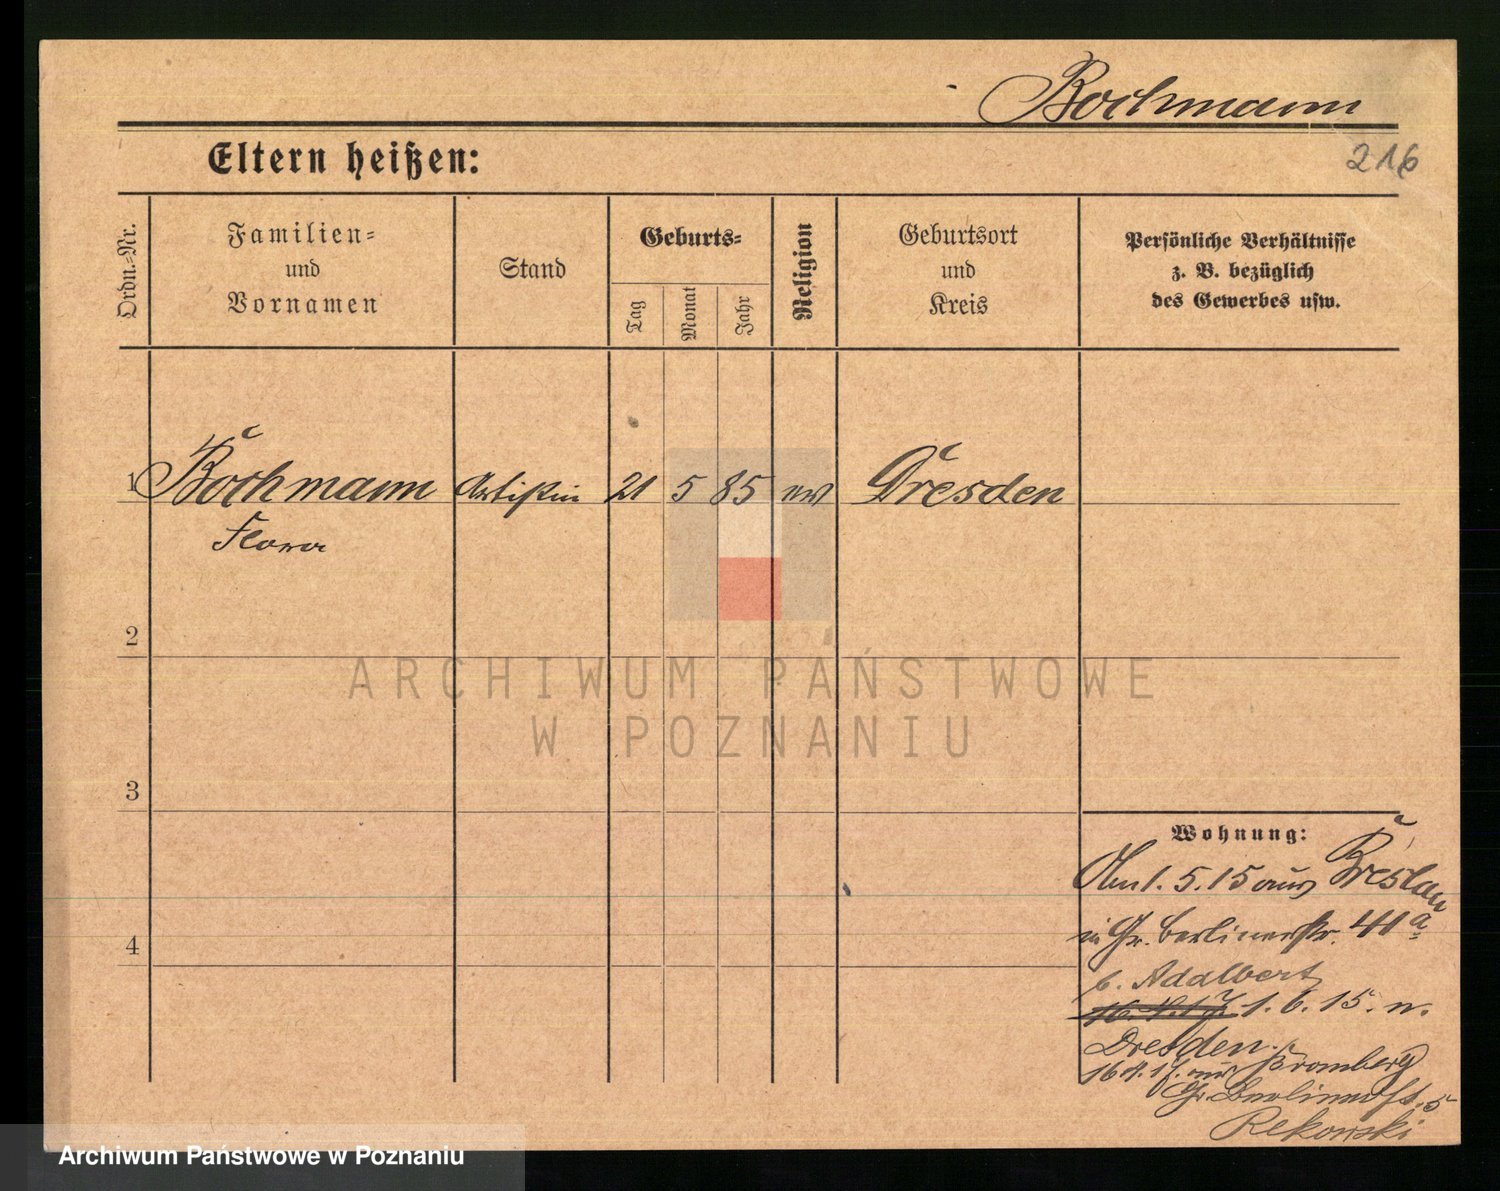 Bochmann
216
Eltern heißen:
Ordn.=Nr.
Familien=
und
Vornamen
Stand
Geburts=
Tag
Monat
Jahr
Religion
Geburtsort
und
Kreis
Persönliche Verhältnisse
z. B. bezüglich
des Gewerbes usw.
1 Bochmann Artistin 21 5 85 ev Dresden
Flora
2
3
4
Wohnung:
Am 1. 5. 15 aus Breslau
in Gr. Berlinerstr. 41a
b. Adalbert
1. 6. 15. n.
Dresden.
16. 4. 17. aus Bromberg
Gr. Berlinerst. 5
Rekowski
ARCHIWUM PAŃSTWOWE
W POZNANIU
Archiwum Państwowe w Poznaniu